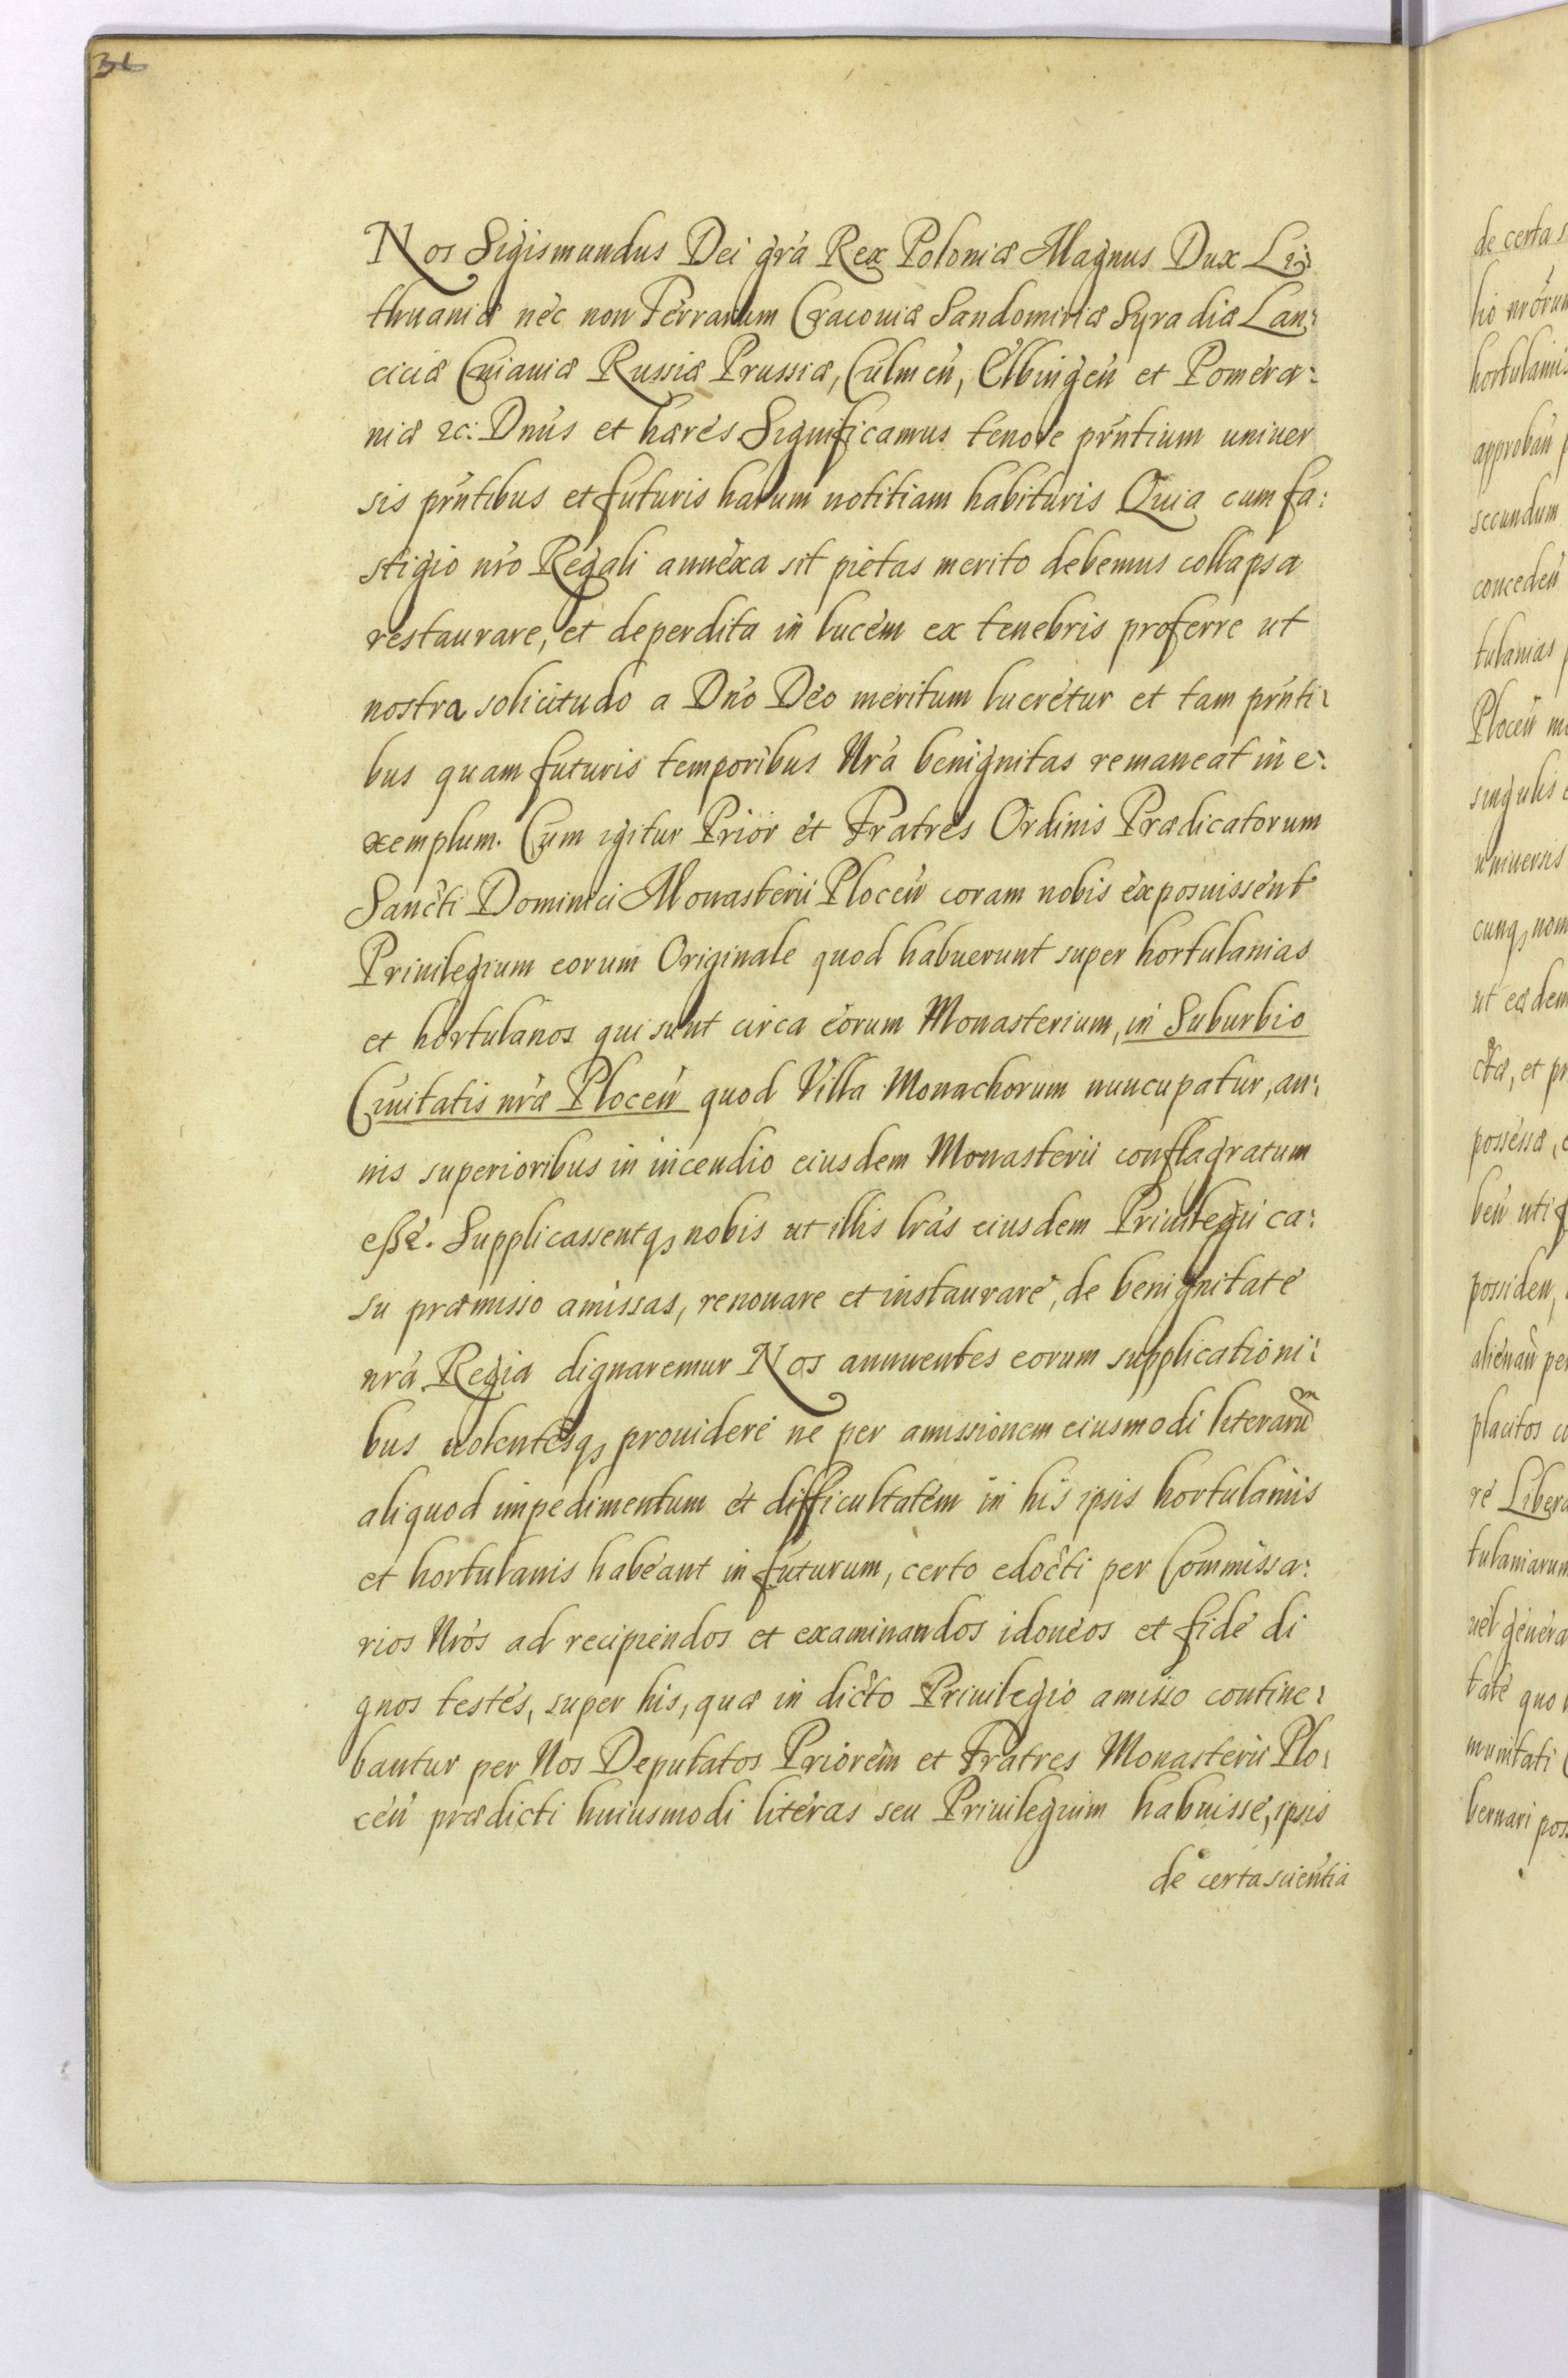 Nos Sigismundus Dei grã Rex Poloniæ Magnus Dux Li:
thuaniæ nec non Terrarum Cracouiæ Sandomiriæ Syradiæ Lan:
ciciæ Cuiauiæ Russiæ Prussiæ, Culmeñ, Elbingeñ et Pomera:
niæ &c: Dnũs et hæres Significamus tenore prñtium uniuer
sis prñtibus et futuris harum notitiam habituris Quia cum fa:
stigio nrõ Regali annexa sit pietas merito debemus collapsa
restaurare, et deperdita in lucem ex tenebris proferre ut
nostra solicitudo a Dnõ Deo meritum lucretur et tam prñti:
bus quam futuris temporibus Nrã benignitas remaneat in e:
xemplum. Cum igitur Prior et Fratres Ordinis Prædicatorum
Sancti Dominici Monasterii Ploceñ coram nobis exposuissent
Priuilegium eorum Originale quod habuerunt super hortulanias
et hortulanos qui sunt circa eorum Monasterium, in Suburbio
Ciuitatis nræ Ploceñ quod Villa Monachorum nuncupatur, an:
nis superioribus in incendio eiusdem Monasterii conflagratum
eße. Supplicassentq₃ nobis ut illis lrãs eiusdem Priuilegii ca:
su præmisso amissas, renouare et instaurare, de benignitate
nrã Regia dignaremur Nos annuentes eorum supplicationi:
bus uolentesq₃ prouidere ne per amissionem eiusmodi literarũ
aliquod impedimentum et difficultatem in his ipsis hortulaniis
et hortulanis habeant in futurum, certo edocti per Commissa:
rios Nrõs ad recipiendos et examinandos idoneos et fide di
gnos testes, super his, quæ in dicto Priuilegio amisso contine:
bantur per Nos Deputatos Priorem et Fratres Monasterii Plo:
ceñ prædicti huiusmodi literas seu Priuilegium habuisse, ipsis
de certa scientia